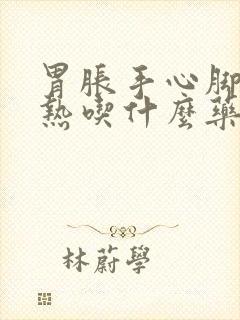 胃脹手心腳
熱喫什麽藥
林蔚學